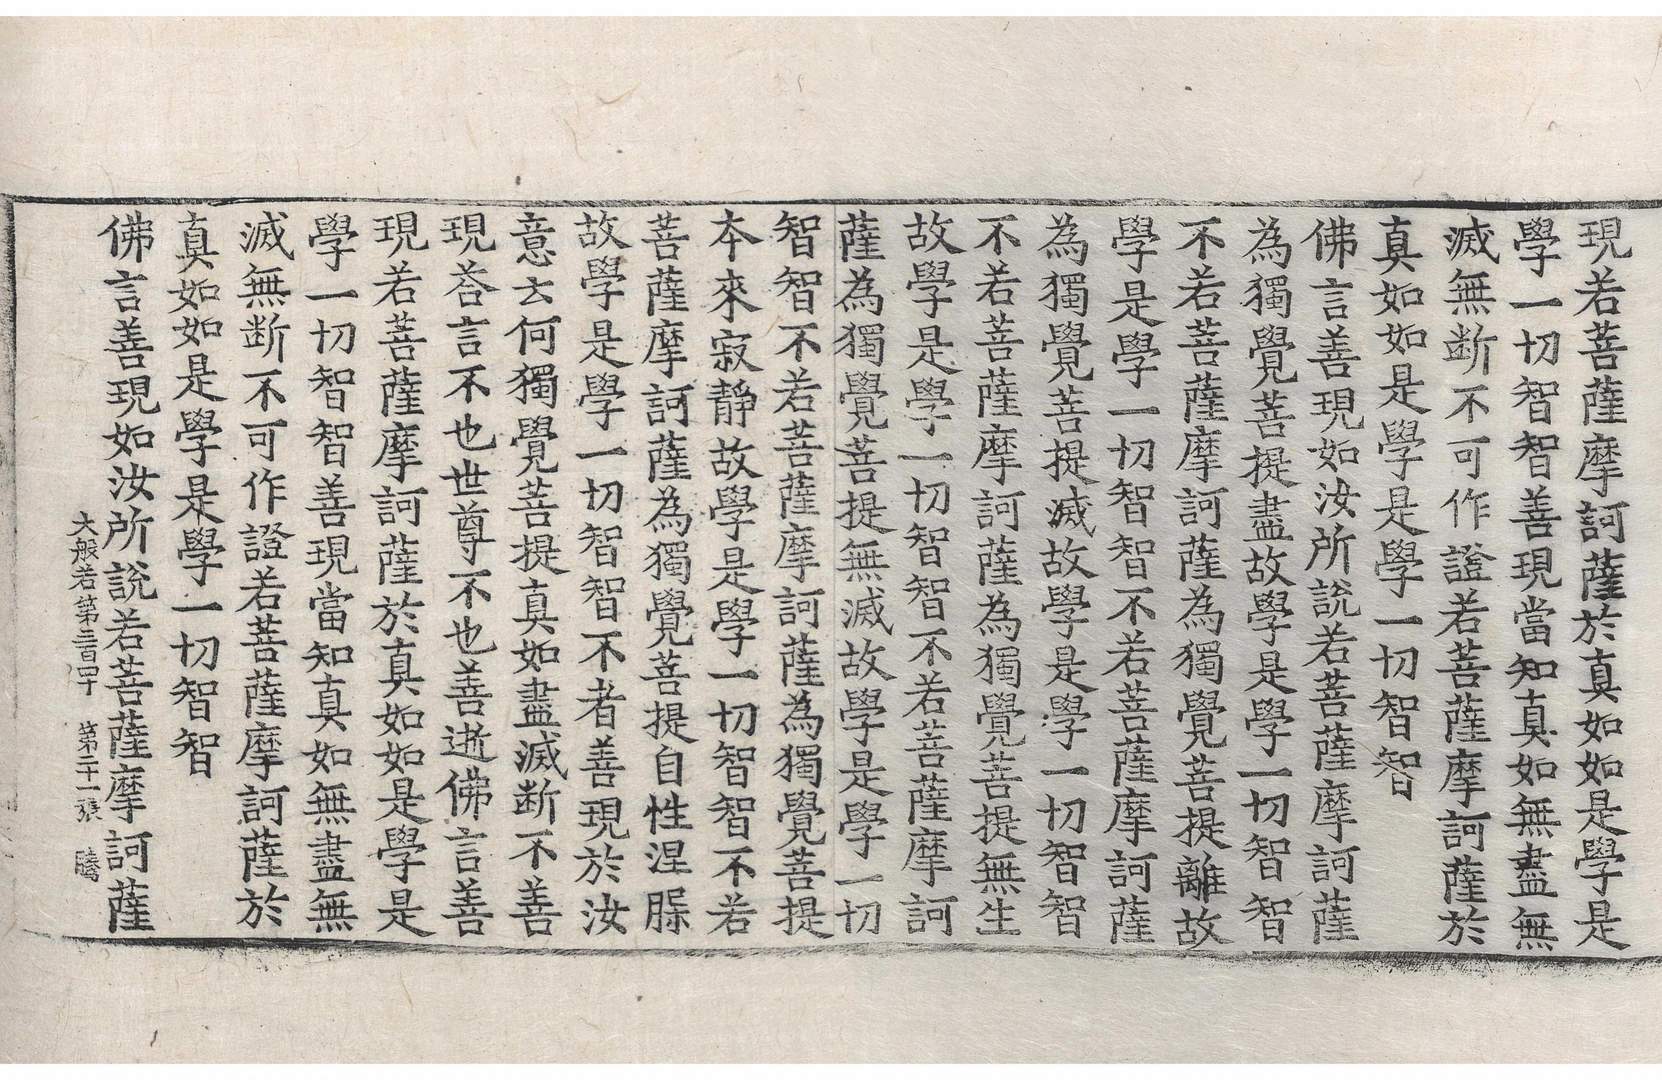 現若菩薩摩訶薩於真如如是學是
學一切智智善現當知真如無盡無
滅無断不可作證若菩薩摩訶薩於
真如如是學是學一切智智
佛言善現如汝所說若菩薩摩訶薩
為獨覺菩提盡故學是學一切智智
不若菩薩摩訶薩為獨覺菩提離故
學是學一切智智不若菩薩摩訶薩
為獨覺菩提滅故學是學一切智智
不若菩薩摩訶薩為獨覺菩提無生
故學是學一切智智不若菩薩摩訶
薩為獨覺菩提無滅故學是學一切
智智不若菩薩摩訶薩為獨覺菩提
本來寂靜故學是學一切智智不若
菩薩摩訶薩為獨覺菩提自性涅槃
故學是學一切智智不者善現於汝
意云何獨覺菩提真如盡滅断不善
現荅言不也世尊不也善逝佛言善
現若菩薩摩訶薩於真如如是學是
學一切智智善現當知真如無盡無
滅無断不可作證若菩薩摩訶薩於
真如如是學是學一切智智
佛言善現如汝所說若菩薩摩訶薩
大般若第三百四十 第二十一張 騰